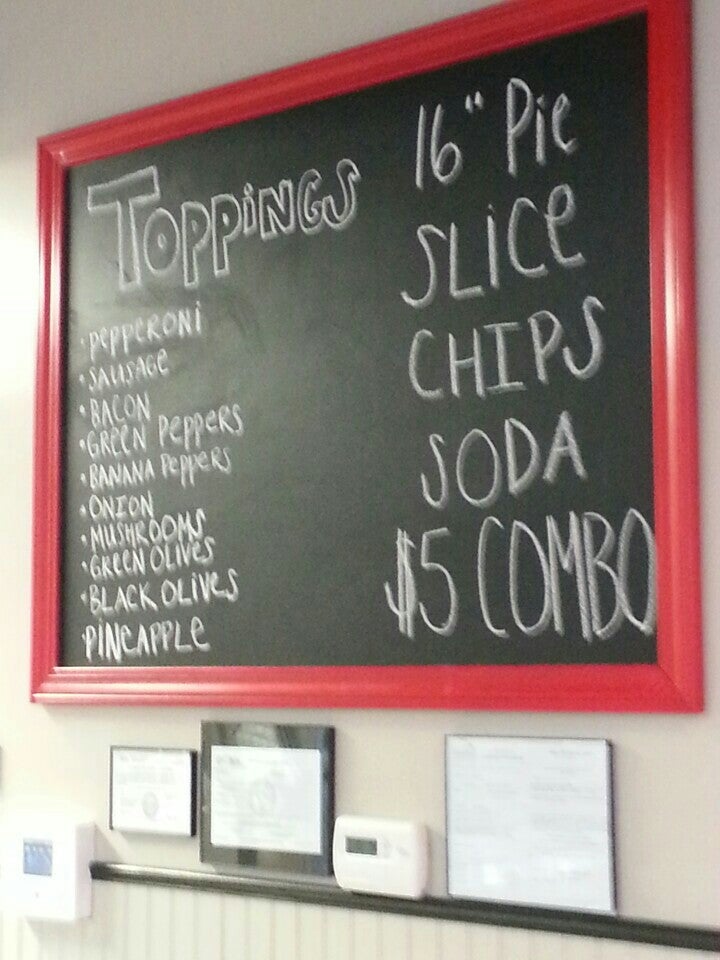 TOPPiNGS
• pepperoni
• SAUSAGE
• BACON
• GREEN peppers
• BANANA peppers
• ONION
• MUSHROOMS
• GREEN OLIVES
• BLACK OLIVES
• PINEAPPLE
16" Pie
SLiCe
CHIPS
SODA
$5 COMBO